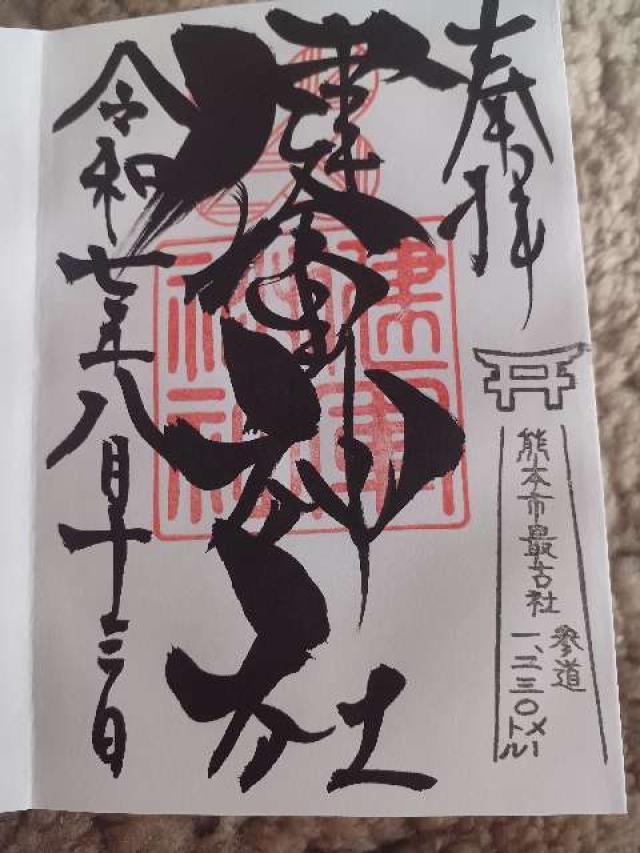 奉拝
健軍神社
令和七年八月十三日
熊本市最古社
参道
一、二三〇メートル
健軍
神社